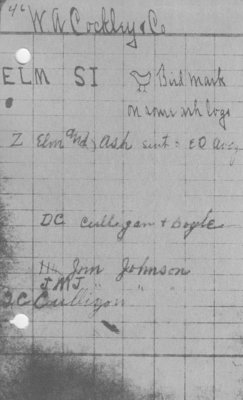 46 W A Cockley & Co
ELM SI Bird Mark
on some ash logs
Z Elm and Ash sent = EO
DC Culligan & Doyle
Jim Johnson
JMJ " "
JC Culligan